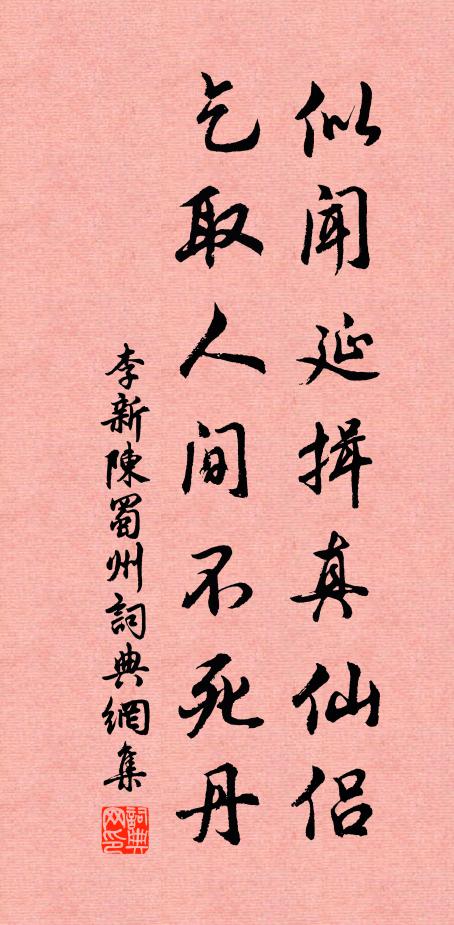 似闻延揖真仙侣
乞取人间不死丹
李新陳蜀州詞典網集
詞典网印